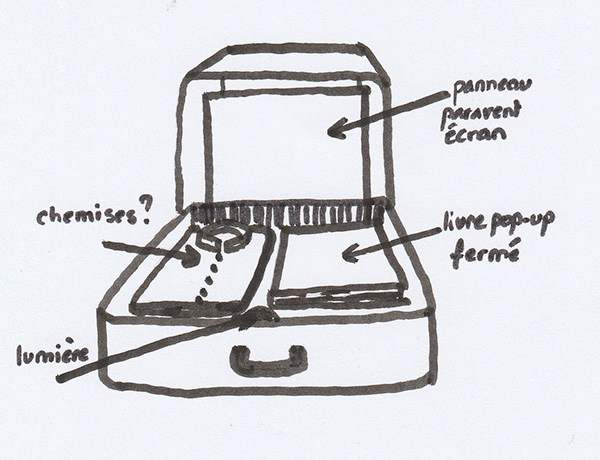 panneau
paravent
écran
chemises?
livre pop-up
fermé
lumière